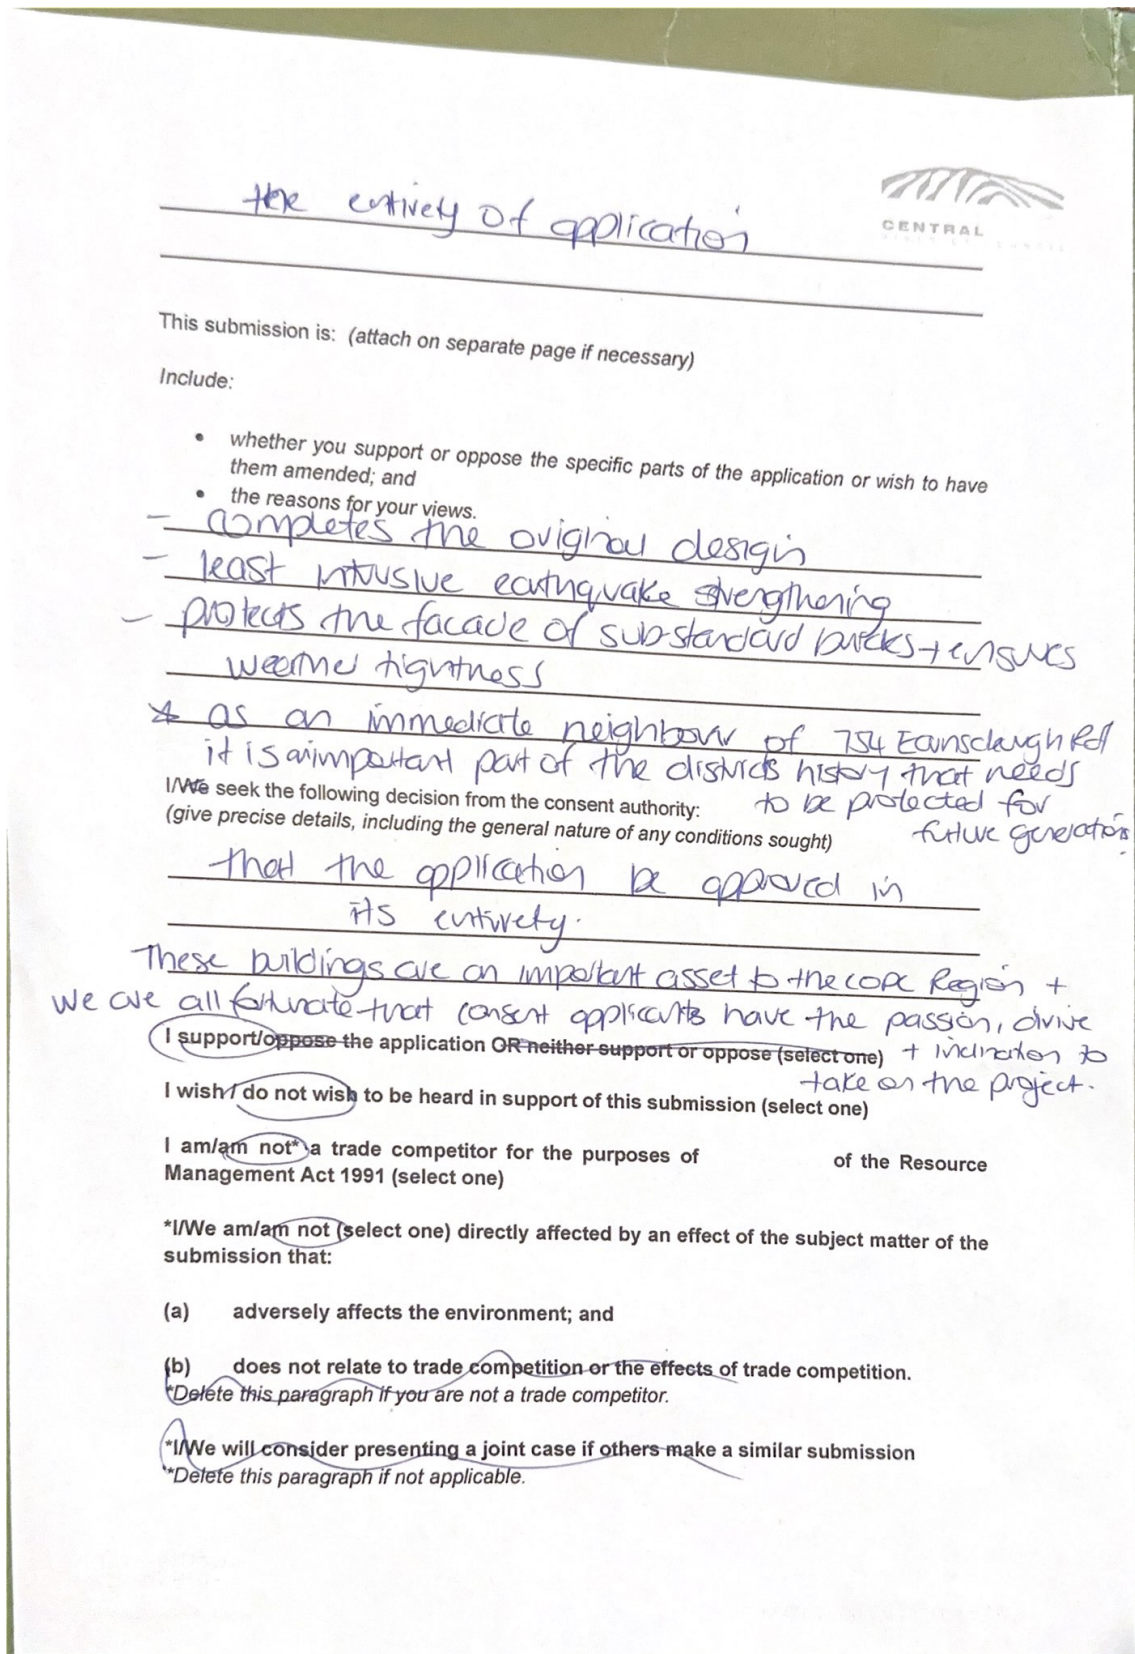 the entirety of application
CENTRAL
This submission is: (attach on separate page if necessary)
Include:
• whether you support or oppose the specific parts of the application or wish to have
them amended; and
• the reasons for your views.
- completes the original design
- least intrusive earthquake strengthening
- protects the facade of sub-standard bricks + ensures
weather tightness
* as an immediate neighbour of 754 Earnscleugh Rd
it is an important part of the districts history that needs
to be protected for
future generations.
I/We seek the following decision from the consent authority:
(give precise details, including the general nature of any conditions sought)
that the application be approved in
its entirety.
These buildings are an important asset to the CODC Region +
we are all fortunate that consent applicants have the passion, drive
+ inclination to
take on the project.
I support/oppose the application OR neither support or oppose (select one)
I wish / do not wish to be heard in support of this submission (select one)
I am/am not* a trade competitor for the purposes of of the Resource
Management Act 1991 (select one)
*I/We am/am not (select one) directly affected by an effect of the subject matter of the
submission that:
(a) adversely affects the environment; and
(b) does not relate to trade competition or the effects of trade competition.
*Delete this paragraph if you are not a trade competitor.
*I/We will consider presenting a joint case if others make a similar submission
*Delete this paragraph if not applicable.